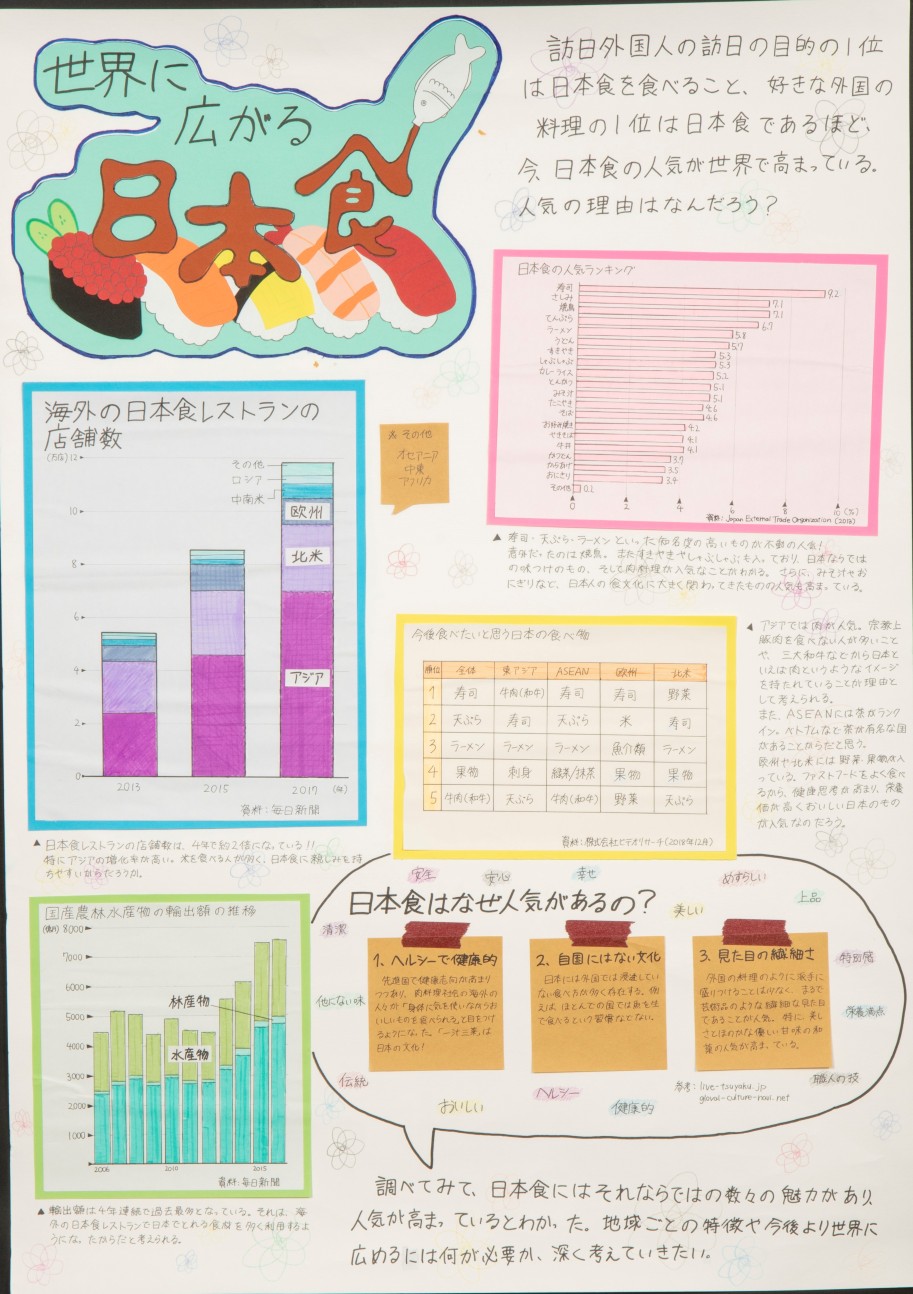 世界に
広がる
日本食
訪日外国人の訪日の目的の1位
は日本食を食べること、好きな外国の
料理の1位は日本食であるほど、
今、日本食の人気が世界で高まっている。
人気の理由はなんだろう？
日本食の人気ランキング
寿司 9.2
さしみ 7.1
焼鳥 7.1
てんぷら 6.7
ラーメン 5.8
うどん 5.7
すきやき 5.3
しゃぶしゃぶ 5.3
カレーライス 5.2
とんかつ 5.1
みそ汁 5.1
たこやき 4.6
そば 4.6
お好み焼き 4.2
やきそば 4.1
牛丼 4.1
かつどん 3.7
からあげ 3.5
おにぎり 3.4
その他 0.2
0 2 4 6 8 10 (%)
資料：Japan External Trade Organization (2013)
▲ 寿司・天ぷら・ラーメンといった知名度の高いものが不動の人気！
意外だったのは焼鳥。またすきやきやしゃぶしゃぶも入っており、日本ならでは
の味つけのもの、そして肉料理が人気なことがわかる。さらに、みそ汁やお
にぎりなど、日本人の食文化に大きく関わってきたものの人気も高まっている。
海外の日本食レストランの
店舗数
(万店)
12
10
8
6
4
2
0
その他
ロシア
中南米
欧州
北米
アジア
2013 2015 2017 (年)
資料：毎日新聞
※その他
オセアニア
中東
アフリカ
▲ 日本食レストランの店舗数は、4年で約2倍になっている!!
特にアジアの増化率が高い。米を食べる人が多く、日本食に親しみを持
ちやすいからだろうか。
今後食べたいと思う日本の食べ物
順位 全体 東アジア ASEAN 欧州 北米
1 寿司 牛肉(和牛) 寿司 寿司 野菜
2 天ぷら 寿司 天ぷら 米 寿司
3 ラーメン ラーメン ラーメン 魚介類 ラーメン
4 果物 刺身 緑茶/抹茶 果物 果物
5 牛肉(和牛) 天ぷら 牛肉(和牛) 野菜 天ぷら
資料：株式会社ビデオリサーチ(2018年12月)
◀ アジアでは肉が人気。宗教上
豚肉を食べない人が多いこと
や、三大和牛などから日本と
いえば肉というようなイメージ
を持たれていることが理由と
して考えられる。
また、ASEANには茶がランク
イン。ベトナムなど茶が有名な国
があることからだと思う。
欧州や北米には野菜・果物が入
っている。ファストフードをよく食べ
るから、健康思考が高まり、栄養
価が高くおいしい日本のもの
が人気なのだろう。
国産農林水産物の輸出額の推移
(億円)
8000
7000
6000
5000
4000
3,000
2,000
1000
林産物
水産物
2006 2010 2015
資料：毎日新聞
▲ 輸出額は4年連続で過去最多となっている。それは、海
外の日本食レストランで日本でとれる食材を多く利用するよ
うになったからだと考えられる。
日本食はなぜ人気があるの？
安全
安心
幸せ
めずらしい
美しい
上品
清潔
特別感
他にない味
栄養満点
伝統
おいしい
ヘルシー
健康的
職人の技
1、ヘルシーで健康的
先進国で健康志向が高まり
つつあり、肉料理社会の海外の
人々が「身体に気を使いながらお
いしいものを食べられる」と目をつけ
るようになった。「一汁三菜」は
日本の文化！
2、自国にはない文化
日本には外国では浸透してい
ない食べ方が多く存在する。例
えば、ほとんどの国では魚を生
で食べるという習慣などない。
3、見た目の繊細さ
外国の料理のように派手に
盛りつけることは少なく、まるで
芸術品のような繊細な見た目
であることが人気。特に美し
さとほのかな優しい甘味の和
菓の人気が高まっている。
参考：live-tsuyaku.jp
gloval-culture-navi.net
調べてみて、日本食にはそれならではの数々の魅力があり、
人気が高まっているとわかった。地域ごとの特徴や今後より世界に
広めるには何が必要か、深く考えていきたい。